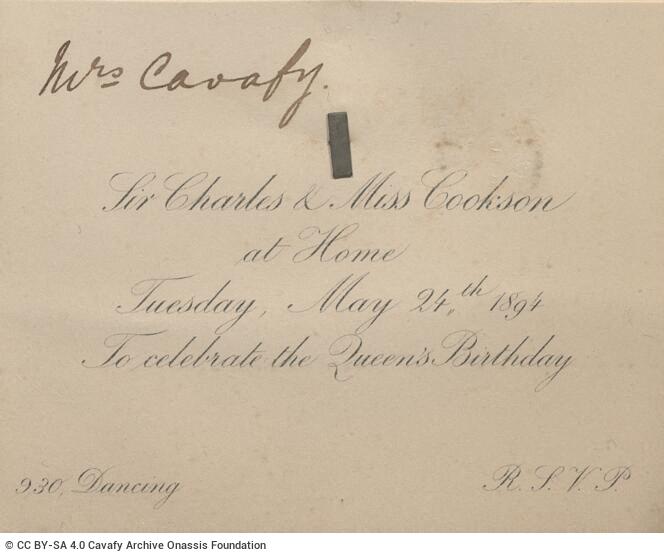 Mrs Cavafy.
Sir Charles & Miss Cookson
at Home
Tuesday, May 24,th 1894
To celebrate the Queen's Birthday
930, Dancing
R. S. V. P.
© CC BY-SA 4.0 Cavafy Archive Onassis Foundation